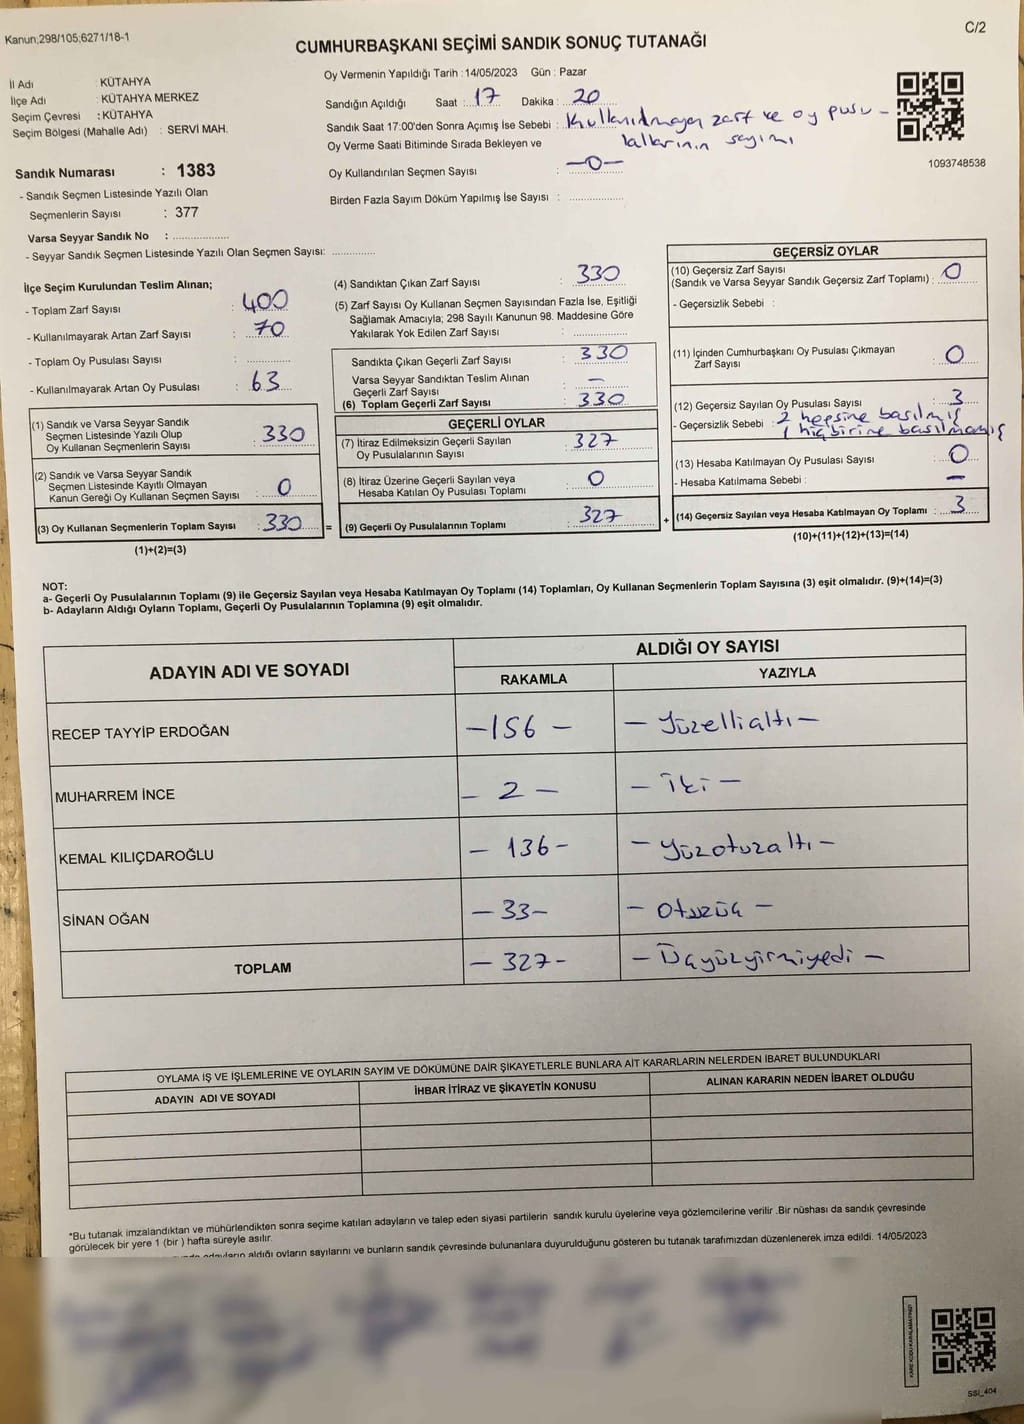 Kanun;298/105;6271/18-1
C/2
CUMHURBAŞKANI SEÇİMİ SANDIK SONUÇ TUTANAĞI
İl Adı : KÜTAHYA
İlçe Adı : KÜTAHYA MERKEZ
Seçim Çevresi : KÜTAHYA
Seçim Bölgesi (Mahalle Adı) : SERVİ MAH.
Oy Vermenin Yapıldığı Tarih : 14/05/2023 Gün : Pazar
Sandığın Açıldığı Saat : 17 Dakika : 20
Sandık Saat 17:00'den Sonra Açımış İse Sebebi : Kullanılmayan zarf ve oy pusu-
lalarının sayımı
Oy Verme Saati Bitiminde Sırada Bekleyen ve
Oy Kullandırılan Seçmen Sayısı : —0—
Birden Fazla Sayım Döküm Yapılmış İse Sayısı :
1093748538
Sandık Numarası : 1383
- Sandık Seçmen Listesinde Yazılı Olan
Seçmenlerin Sayısı : 377
Varsa Seyyar Sandık No :
- Seyyar Sandık Seçmen Listesinde Yazılı Olan Seçmen Sayısı:
İlçe Seçim Kurulundan Teslim Alınan;
- Toplam Zarf Sayısı : 400
- Kullanılmayarak Artan Zarf Sayısı : 70
- Toplam Oy Pusulası Sayısı :
- Kullanılmayarak Artan Oy Pusulası : 63
(1) Sandık ve Varsa Seyyar Sandık
Seçmen Listesinde Yazılı Olup
Oy Kullanan Seçmenlerin Sayısı : 330
(2) Sandık ve Varsa Seyyar Sandık
Seçmen Listesinde Kayıtlı Olmayan
Kanun Gereği Oy Kullanan Seçmen Sayısı : 0
(3) Oy Kullanan Seçmenlerin Toplam Sayısı : 330 =
(1)+(2)=(3)
(4) Sandıktan Çıkan Zarf Sayısı : 330
(5) Zarf Sayısı Oy Kullanan Seçmen Sayısından Fazla İse, Eşitliği
Sağlamak Amacıyla; 298 Sayılı Kanunun 98. Maddesine Göre
Yakılarak Yok Edilen Zarf Sayısı :
Sandıkta Çıkan Geçerli Zarf Sayısı : 330
Varsa Seyyar Sandıktan Teslim Alınan
Geçerli Zarf Sayısı : —
(6) Toplam Geçerli Zarf Sayısı : 330
GEÇERLİ OYLAR
(7) İtiraz Edilmeksizin Geçerli Sayılan
Oy Pusulalarının Sayısı : 327
(8) İtiraz Üzerine Geçerli Sayılan veya
Hesaba Katılan Oy Pusulası Toplamı : 0
(9) Geçerli Oy Pusulalarının Toplamı : 327 +
GEÇERSİZ OYLAR
(10) Geçersiz Zarf Sayısı
(Sandık ve Varsa Seyyar Sandık Geçersiz Zarf Toplamı) : 0
- Geçersizlik Sebebi :
(11) İçinden Cumhurbaşkanı Oy Pusulası Çıkmayan
Zarf Sayısı : 0
(12) Geçersiz Sayılan Oy Pusulası Sayısı : 3
- Geçersizlik Sebebi : 2 hepsine basılmış
1 hiçbirine basılmamış
(13) Hesaba Katılmayan Oy Pusulası Sayısı : 0
- Hesaba Katılmama Sebebi : —
(14) Geçersiz Sayılan veya Hesaba Katılmayan Oy Toplamı : 3
(10)+(11)+(12)+(13)=(14)
NOT:
a- Geçerli Oy Pusulalarının Toplamı (9) ile Geçersiz Sayılan veya Hesaba Katılmayan Oy Toplamı (14) Toplamları, Oy Kullanan Seçmenlerin Toplam Sayısına (3) eşit olmalıdır. (9)+(14)=(3)
b- Adayların Aldığı Oyların Toplamı, Geçerli Oy Pusulalarının Toplamına (9) eşit olmalıdır.
ADAYIN ADI VE SOYADI
ALDIĞI OY SAYISI
RAKAMLA YAZIYLA
RECEP TAYYİP ERDOĞAN —156— —Yüzellialtı—
MUHARREM İNCE —2— —İki—
KEMAL KILIÇDAROĞLU —136— —Yüzotuzaltı—
SİNAN OĞAN —33— —Otuzüç—
TOPLAM —327— —Üçyüzyirmiyedi—
OYLAMA İŞ VE İŞLEMLERİNE VE OYLARIN SAYIM VE DÖKÜMÜNE DAİR ŞİKAYETLERLE BUNLARA AİT KARARLARIN NELERDEN İBARET BULUNDUKLARI
ADAYIN ADI VE SOYADI İHBAR İTİRAZ VE ŞİKAYETİN KONUSU ALINAN KARARIN NEDEN İBARET OLDUĞU
*Bu tutanak imzalandıktan ve mühürlendikten sonra seçime katılan adayların ve talep eden siyasi partilerin sandık kurulu üyelerine veya gözlemcilerine verilir .Bir nüshası da sandık çevresinde
görülecek bir yere 1 (bir ) hafta süreyle asılır.
adayların aldığı oyların sayılarını ve bunların sandık çevresinde bulunanlara duyurulduğunu gösteren bu tutanak tarafımızdan düzenlenerek imza edildi. 14/05/2023
KARE KODU KARALAMAYINIZ!
SSİ_404